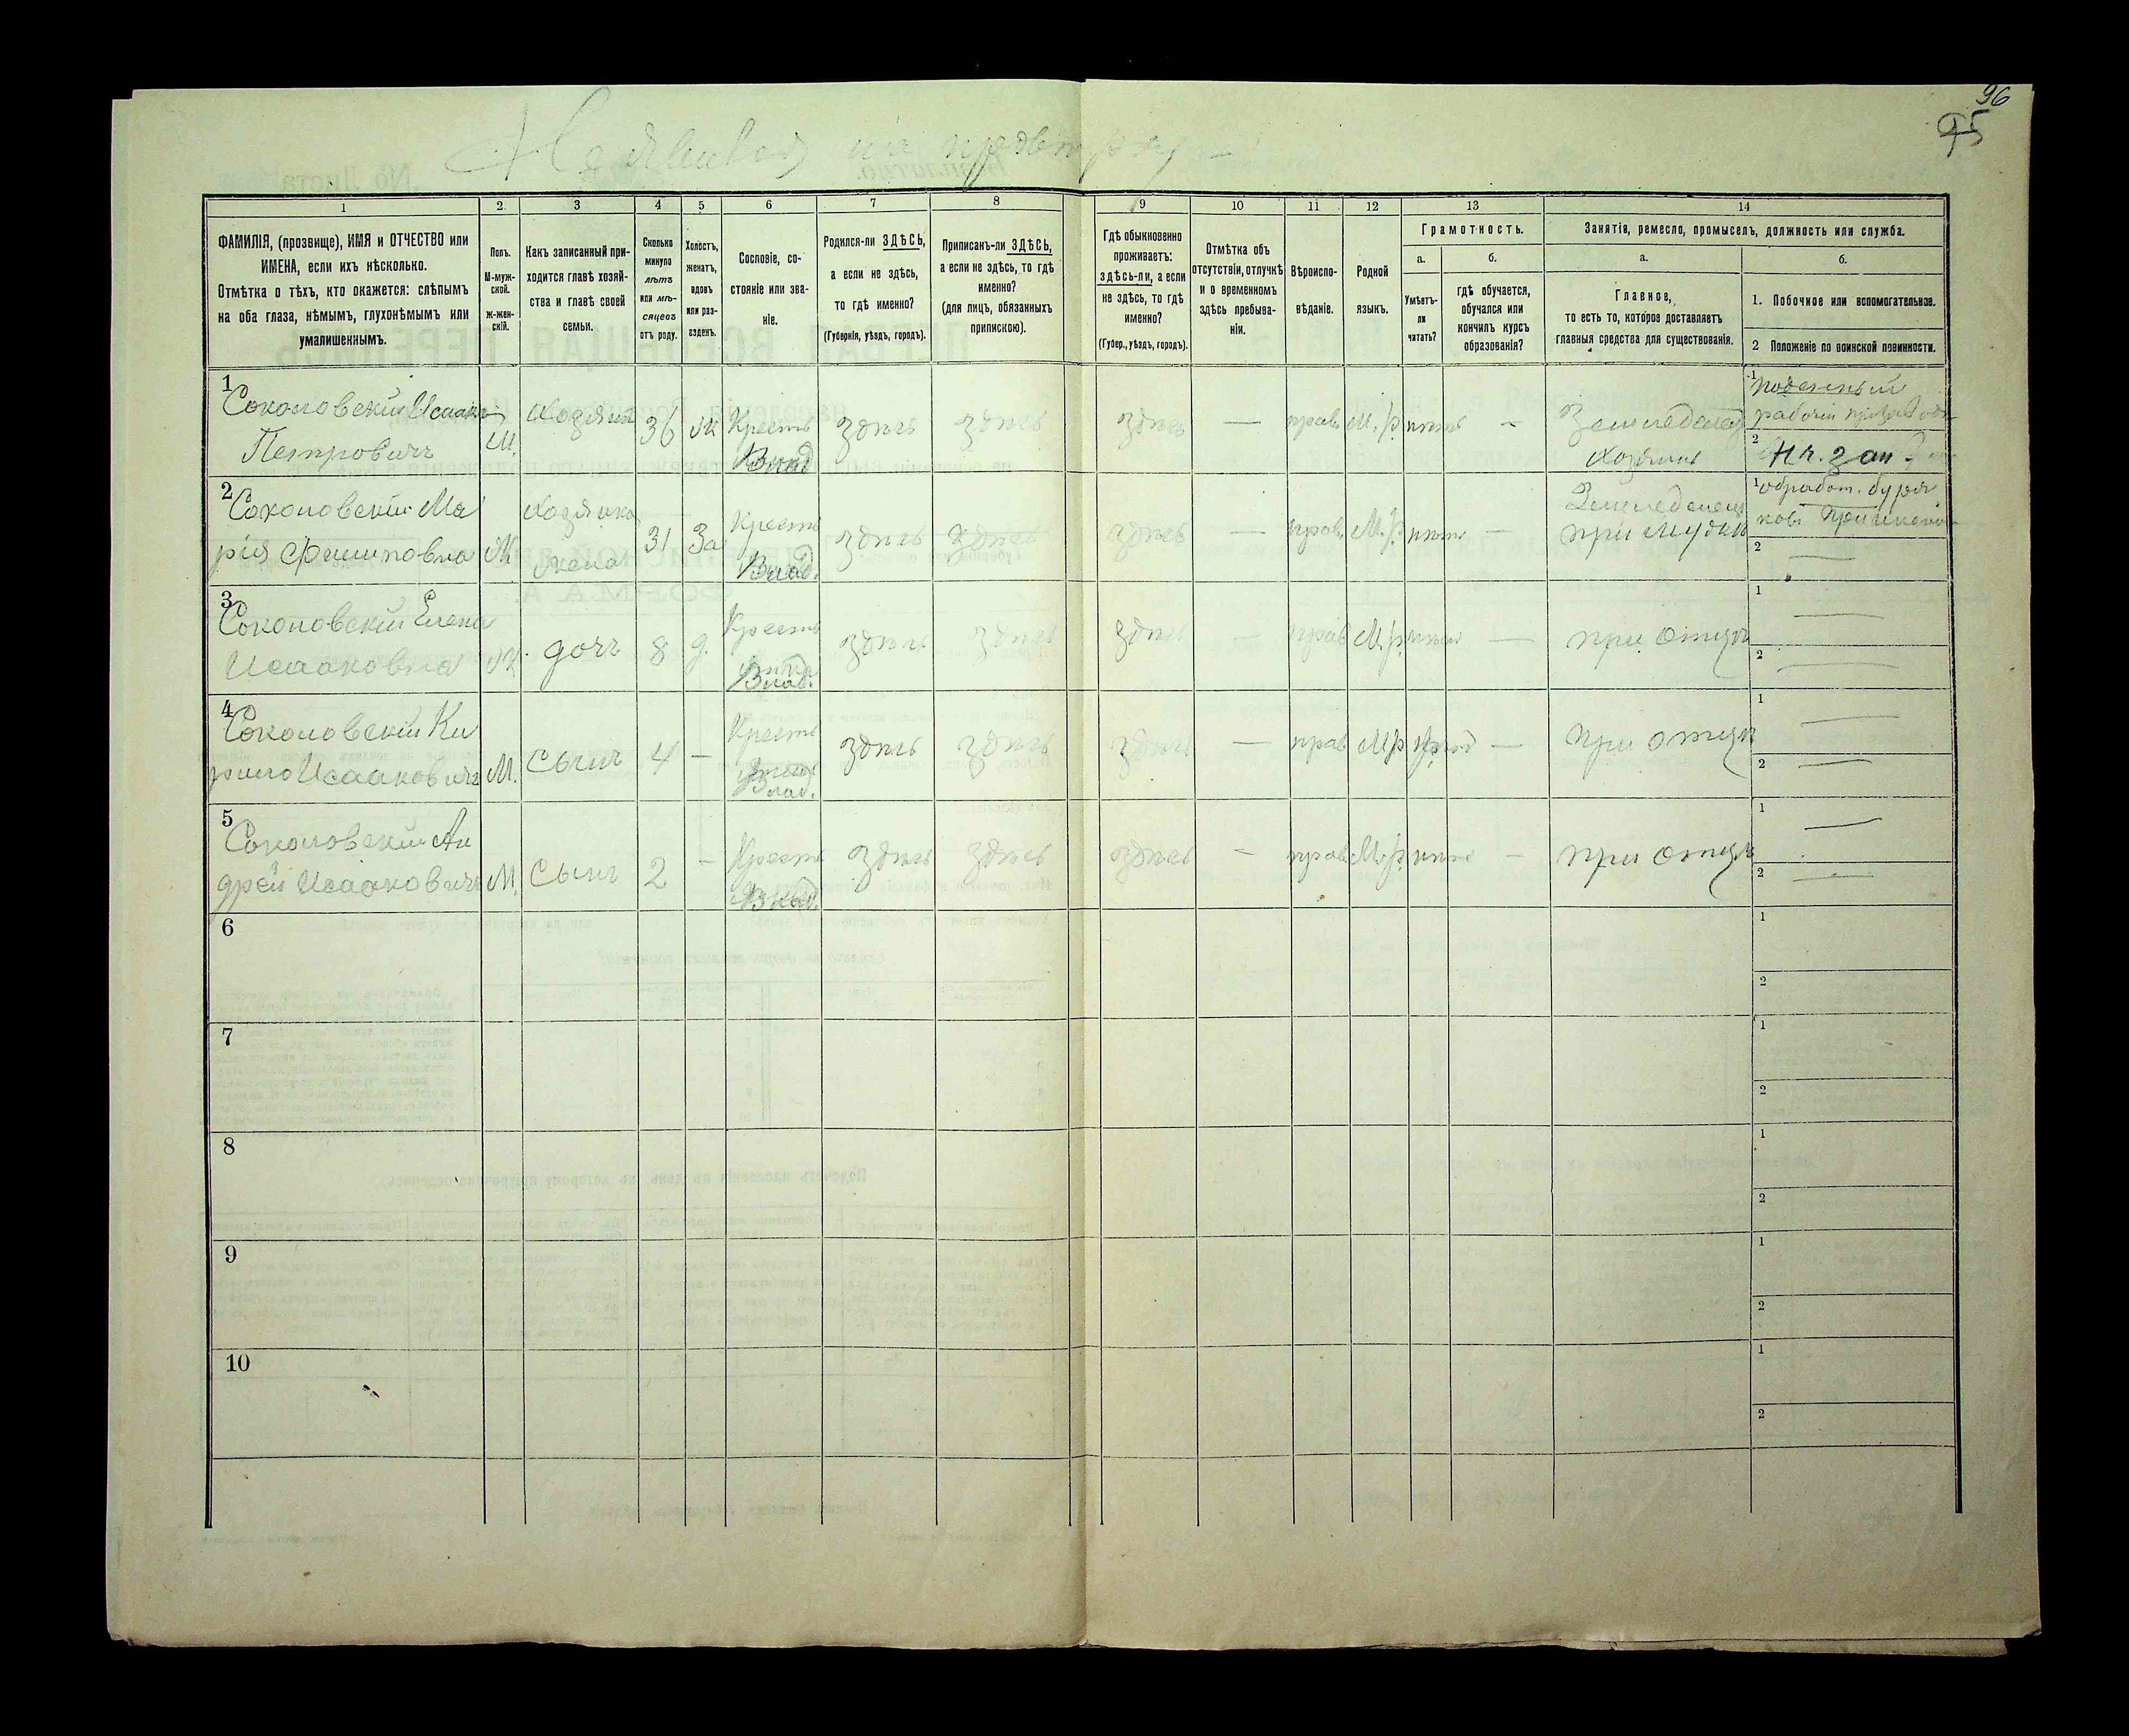 96
95
1
2
3
4
5
6
7
8
9
10
11
12
13
14
ФАМИЛІЯ, (прозвище), ИМЯ и ОТЧЕСТВО или
ИМЕНА, если ихъ нѣсколько.
Отмѣтка о тѣхъ, кто окажется: слѣпымъ
на оба глаза, нѣмымъ, глухонѣмымъ или
умалишеннымъ.
Полъ.
М-муж-
ской.
Ж-жен-
скій.
Какъ записанный при-
ходится главѣ хозяй-
ства и главѣ своей
семьи.
Сколько
минуло
лѣтъ
или мѣ-
сяцевъ
отъ роду.
Холостъ,
женатъ,
вдовъ
или раз-
веденъ.
Сословіе, со-
стояніе или зва-
ніе.
Родился-ли ЗДѢСЬ,
а если не здѣсь,
то гдѣ именно?
(Губернія, уѣздъ, городъ).
Приписанъ-ли ЗДѢСЬ,
а если не здѣсь, то гдѣ
именно?
(для лицъ, обязанныхъ
припискою).
Гдѣ обыкновенно
проживаетъ:
здѣсь-ли, а если
не здѣсь, то гдѣ
именно?
(Губер., уѣздъ, городъ).
Отмѣтка объ
отсутствіи, отлучкѣ
и о временномъ
здѣсь пребыва-
ніи.
Вѣроиспо-
вѣданіе.
Родной
языкъ.
Грамотность.
а.
Умѣетъ-
ли
читать?
б.
гдѣ обучается,
обучался или
кончилъ курсъ
образованія?
Занятія, ремесло, промыселъ, должность или служба.
а.
Главное,
то есть то, которое доставляетъ
главныя средства для существованія.
б.
1. Побочное или вспомогательное.
2 Положеніе по воинской повинности.
1
Соколовскій Исаакъ
Петровичъ
М.
Хозяинъ
36
ж
Крестъ
Влад
здѣсь
здѣсь
здѣсь
—
прав.
М.р.
нѣтъ
-
Земледѣлецъ
Хозяинъ
1
рабочій
2
2
Соколовскій Ма
рія Филиповна
Ж
Хозяйка
жена
31
За
Крестъ
Влад.
здѣсь
здѣсь
здѣсь
—
прав.
М.р.
нѣтъ
—
Земледѣлецъ
при мужѣ
1 обработ. буря
ковъ
2 —
3
Соколовскій Елена
Исааковна
Ж
дочь
8
д.
Крестъ
Влад.
здѣсь
здѣсь
здѣсь
—
прав
М.р.
нѣтъ
—
при отцѣ
1 —
2 —
4
Соколовскій Ки
рило Исааковичъ
М.
Сынъ
4
—
Крестъ
Влад.
здѣсь
здѣсь
здѣсь
—
прав
М.р.
—
при отцѣ
1 —
2 —
5
Соколовскій Ан
дрей Исааковичъ
М.
Сынъ
2
—
Крестъ
Влад.
здѣсь
здѣсь
здѣсь
-
прав.
М.р.
нѣтъ
-
при отцѣ
1 —
2 —
6
1
2
7
1
2
8
1
2
9
1
2
10
1
2